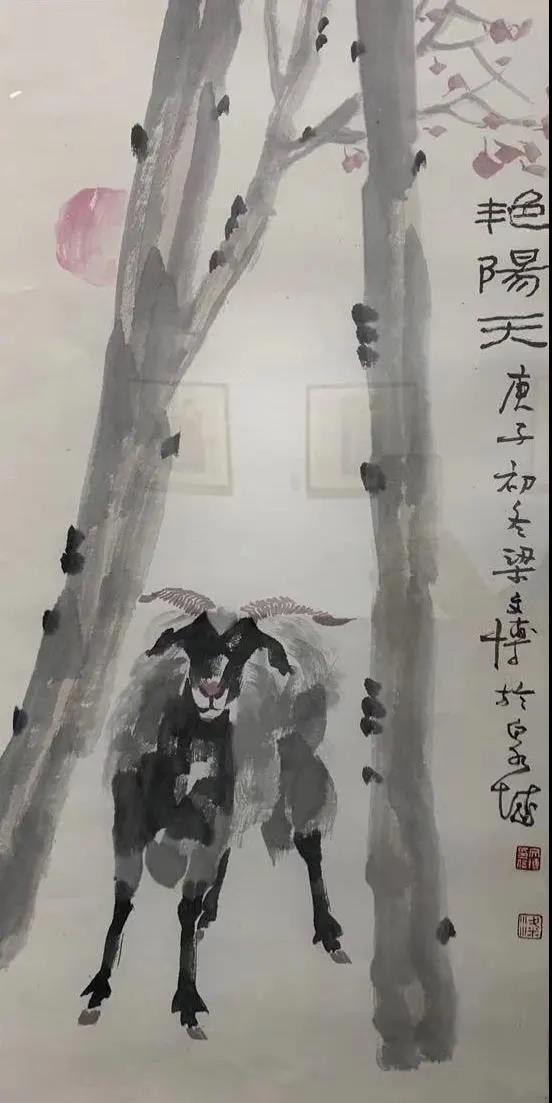 艳陽天
庚子初冬梁文博於泉城